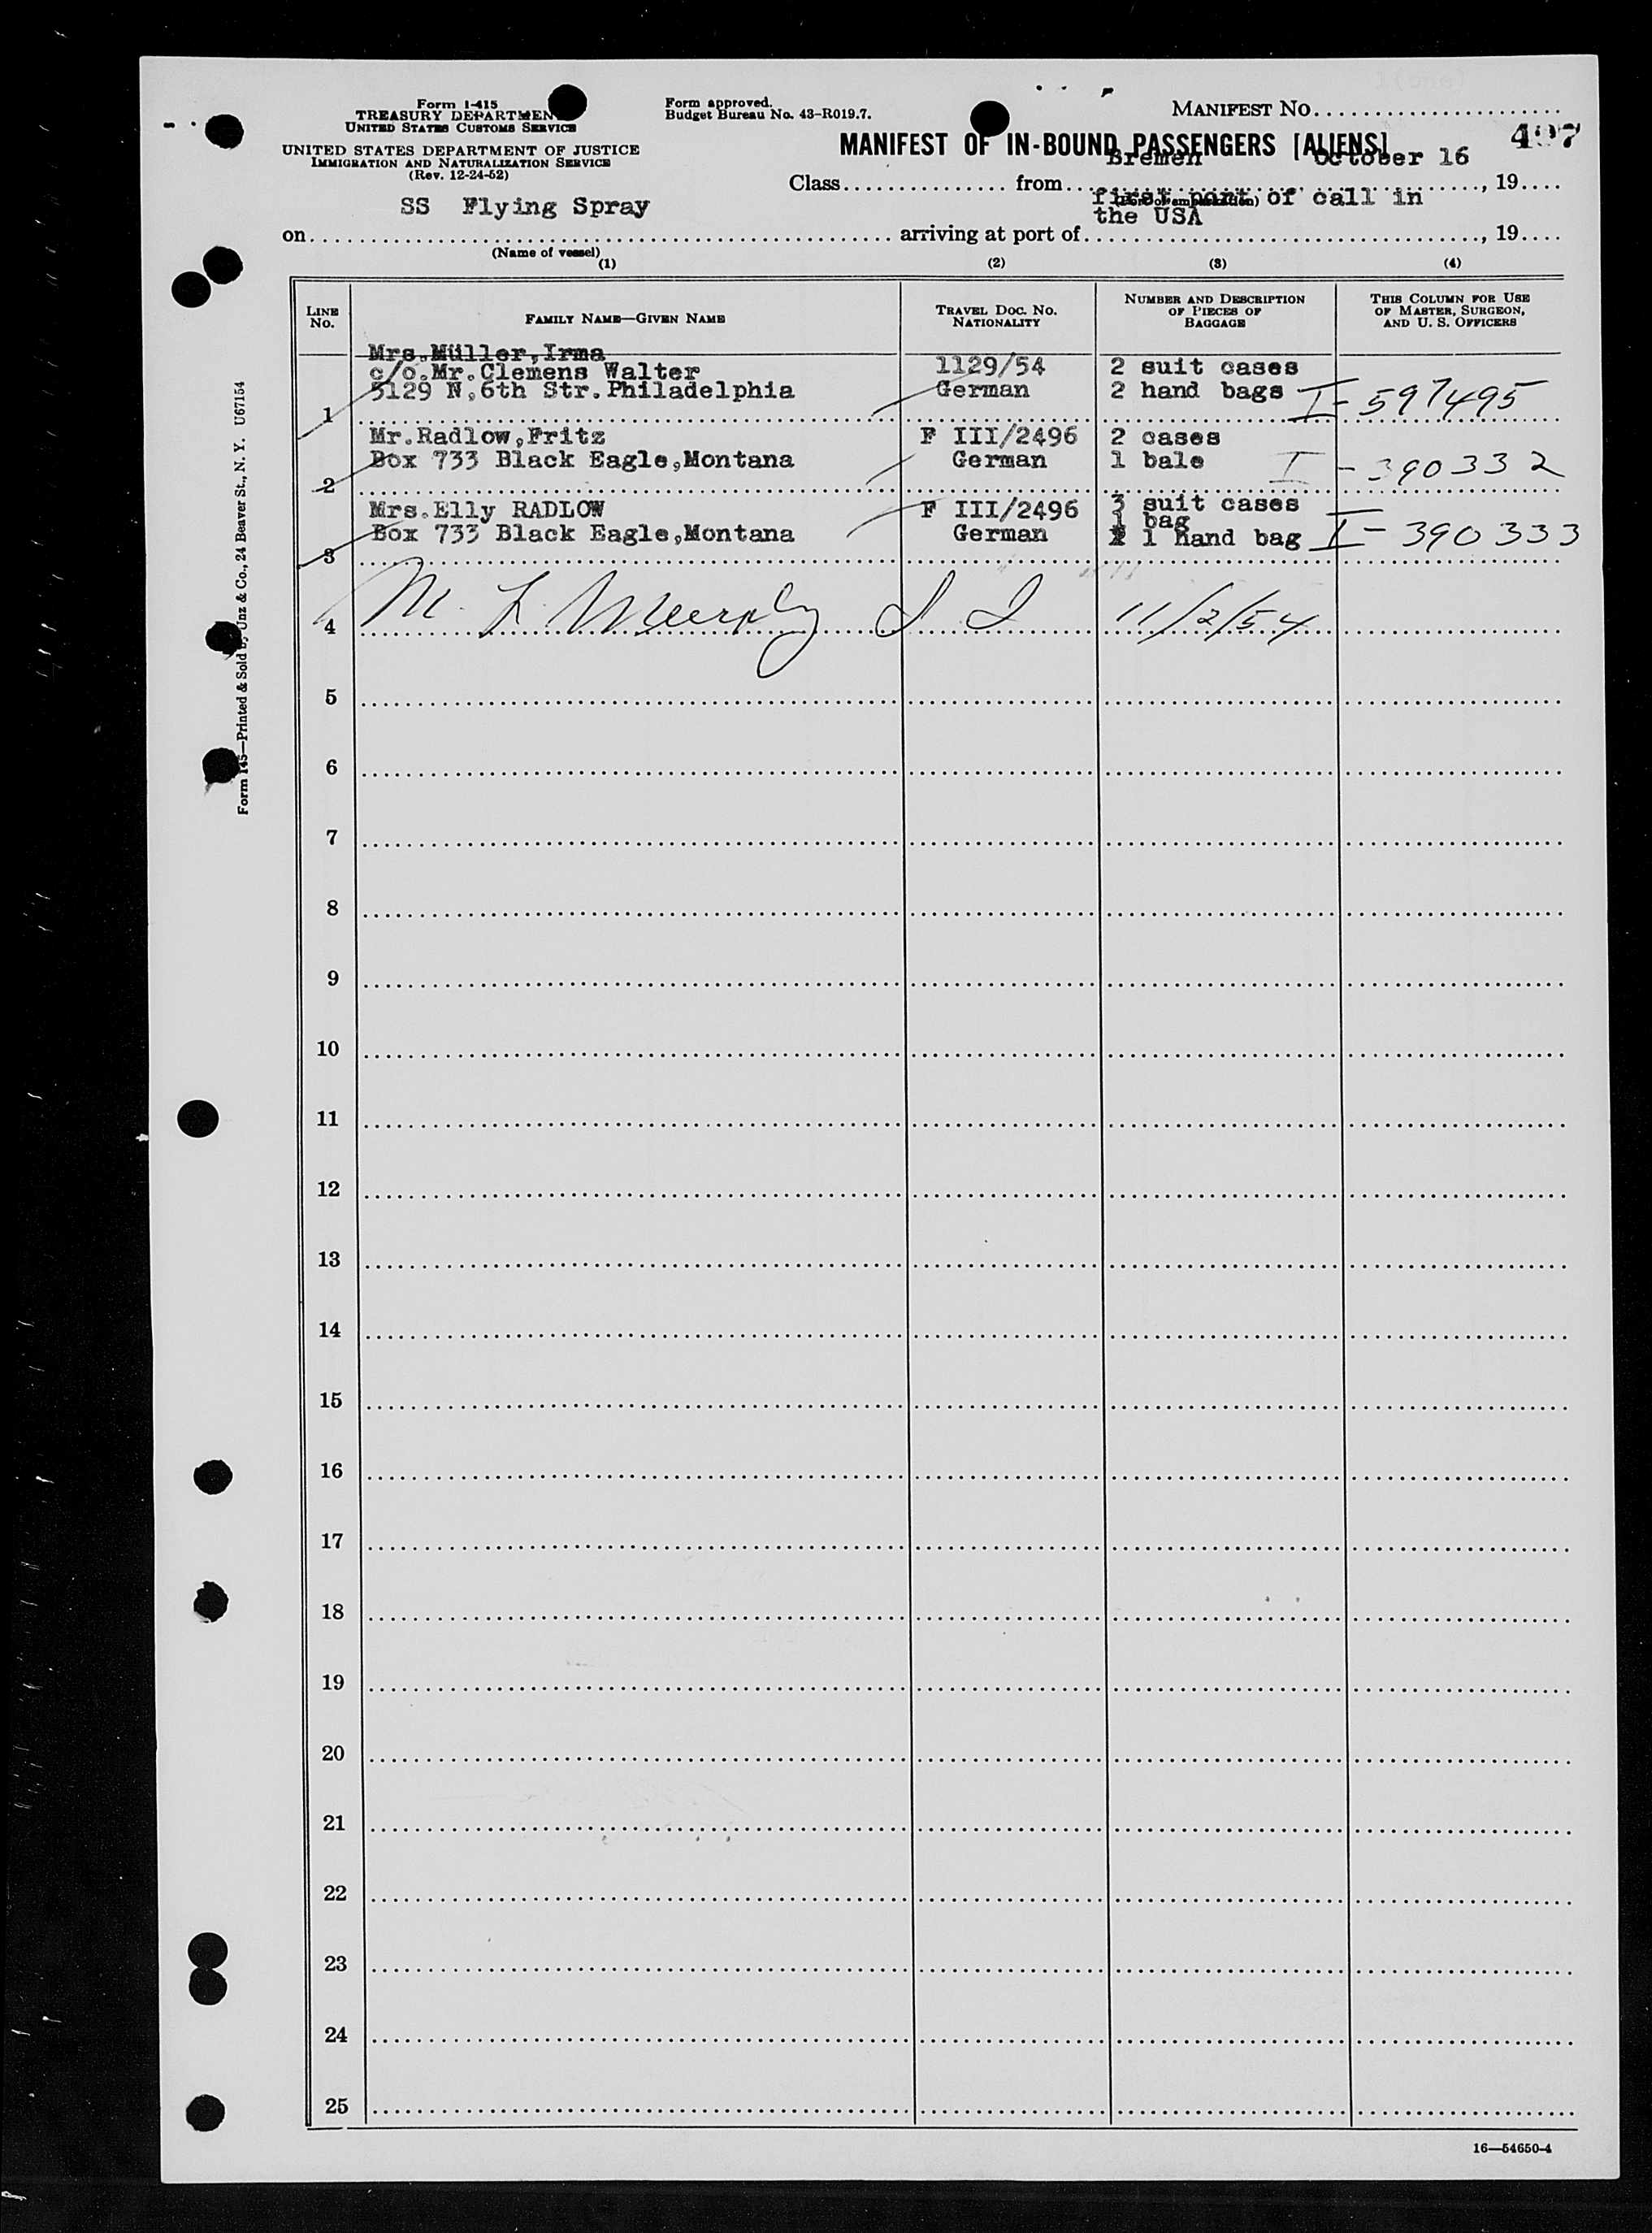 Form I-415
TREASURY DEPARTMENT
UNITED STATES CUSTOMS SERVICE
UNITED STATES DEPARTMENT OF JUSTICE
IMMIGRATION AND NATURALIZATION SERVICE
(Rev. 12-24-52)
Form approved.
Budget Bureau No. 43-R019.7.
MANIFEST NO.
MANIFEST OF IN-BOUND PASSENGERS [ALIENS]
Class from Bremen October 16, 19
(Port of embarkation)
SS Flying Spray
first port of call in
the USA
on arriving at port of , 19
(Name of vessel)
(1) (2) (3) (4)
LINE NO. FAMILY NAME—GIVEN NAME TRAVEL DOC. NO. NATIONALITY NUMBER AND DESCRIPTION OF PIECES OF BAGGAGE THIS COLUMN FOR USE OF MASTER, SURGEON, AND U. S. OFFICERS
Mrs.Müller,Irma
c/o.Mr.Clemens Walter 1129/54 2 suit cases
5129 N,6th Str.Philadelphia German 2 hand bags I-597495
1
Mr.Radlow,Fritz F III/2496 2 cases
Box 733 Black Eagle,Montana German 1 bale I-390332
2
Mrs.Elly RADLOW F III/2496 3 suit cases
1 bag
Box 733 Black Eagle,Montana German 1 hand bag I-390333
3
4 M. L. Murphy I I 11/2/54
5
6
7
8
9
10
11
12
13
14
15
16
17
18
19
20
21
22
23
24
25
16—54650-4
Form 145—Printed & Sold by Unz & Co., 24 Beaver St., N. Y. U67154